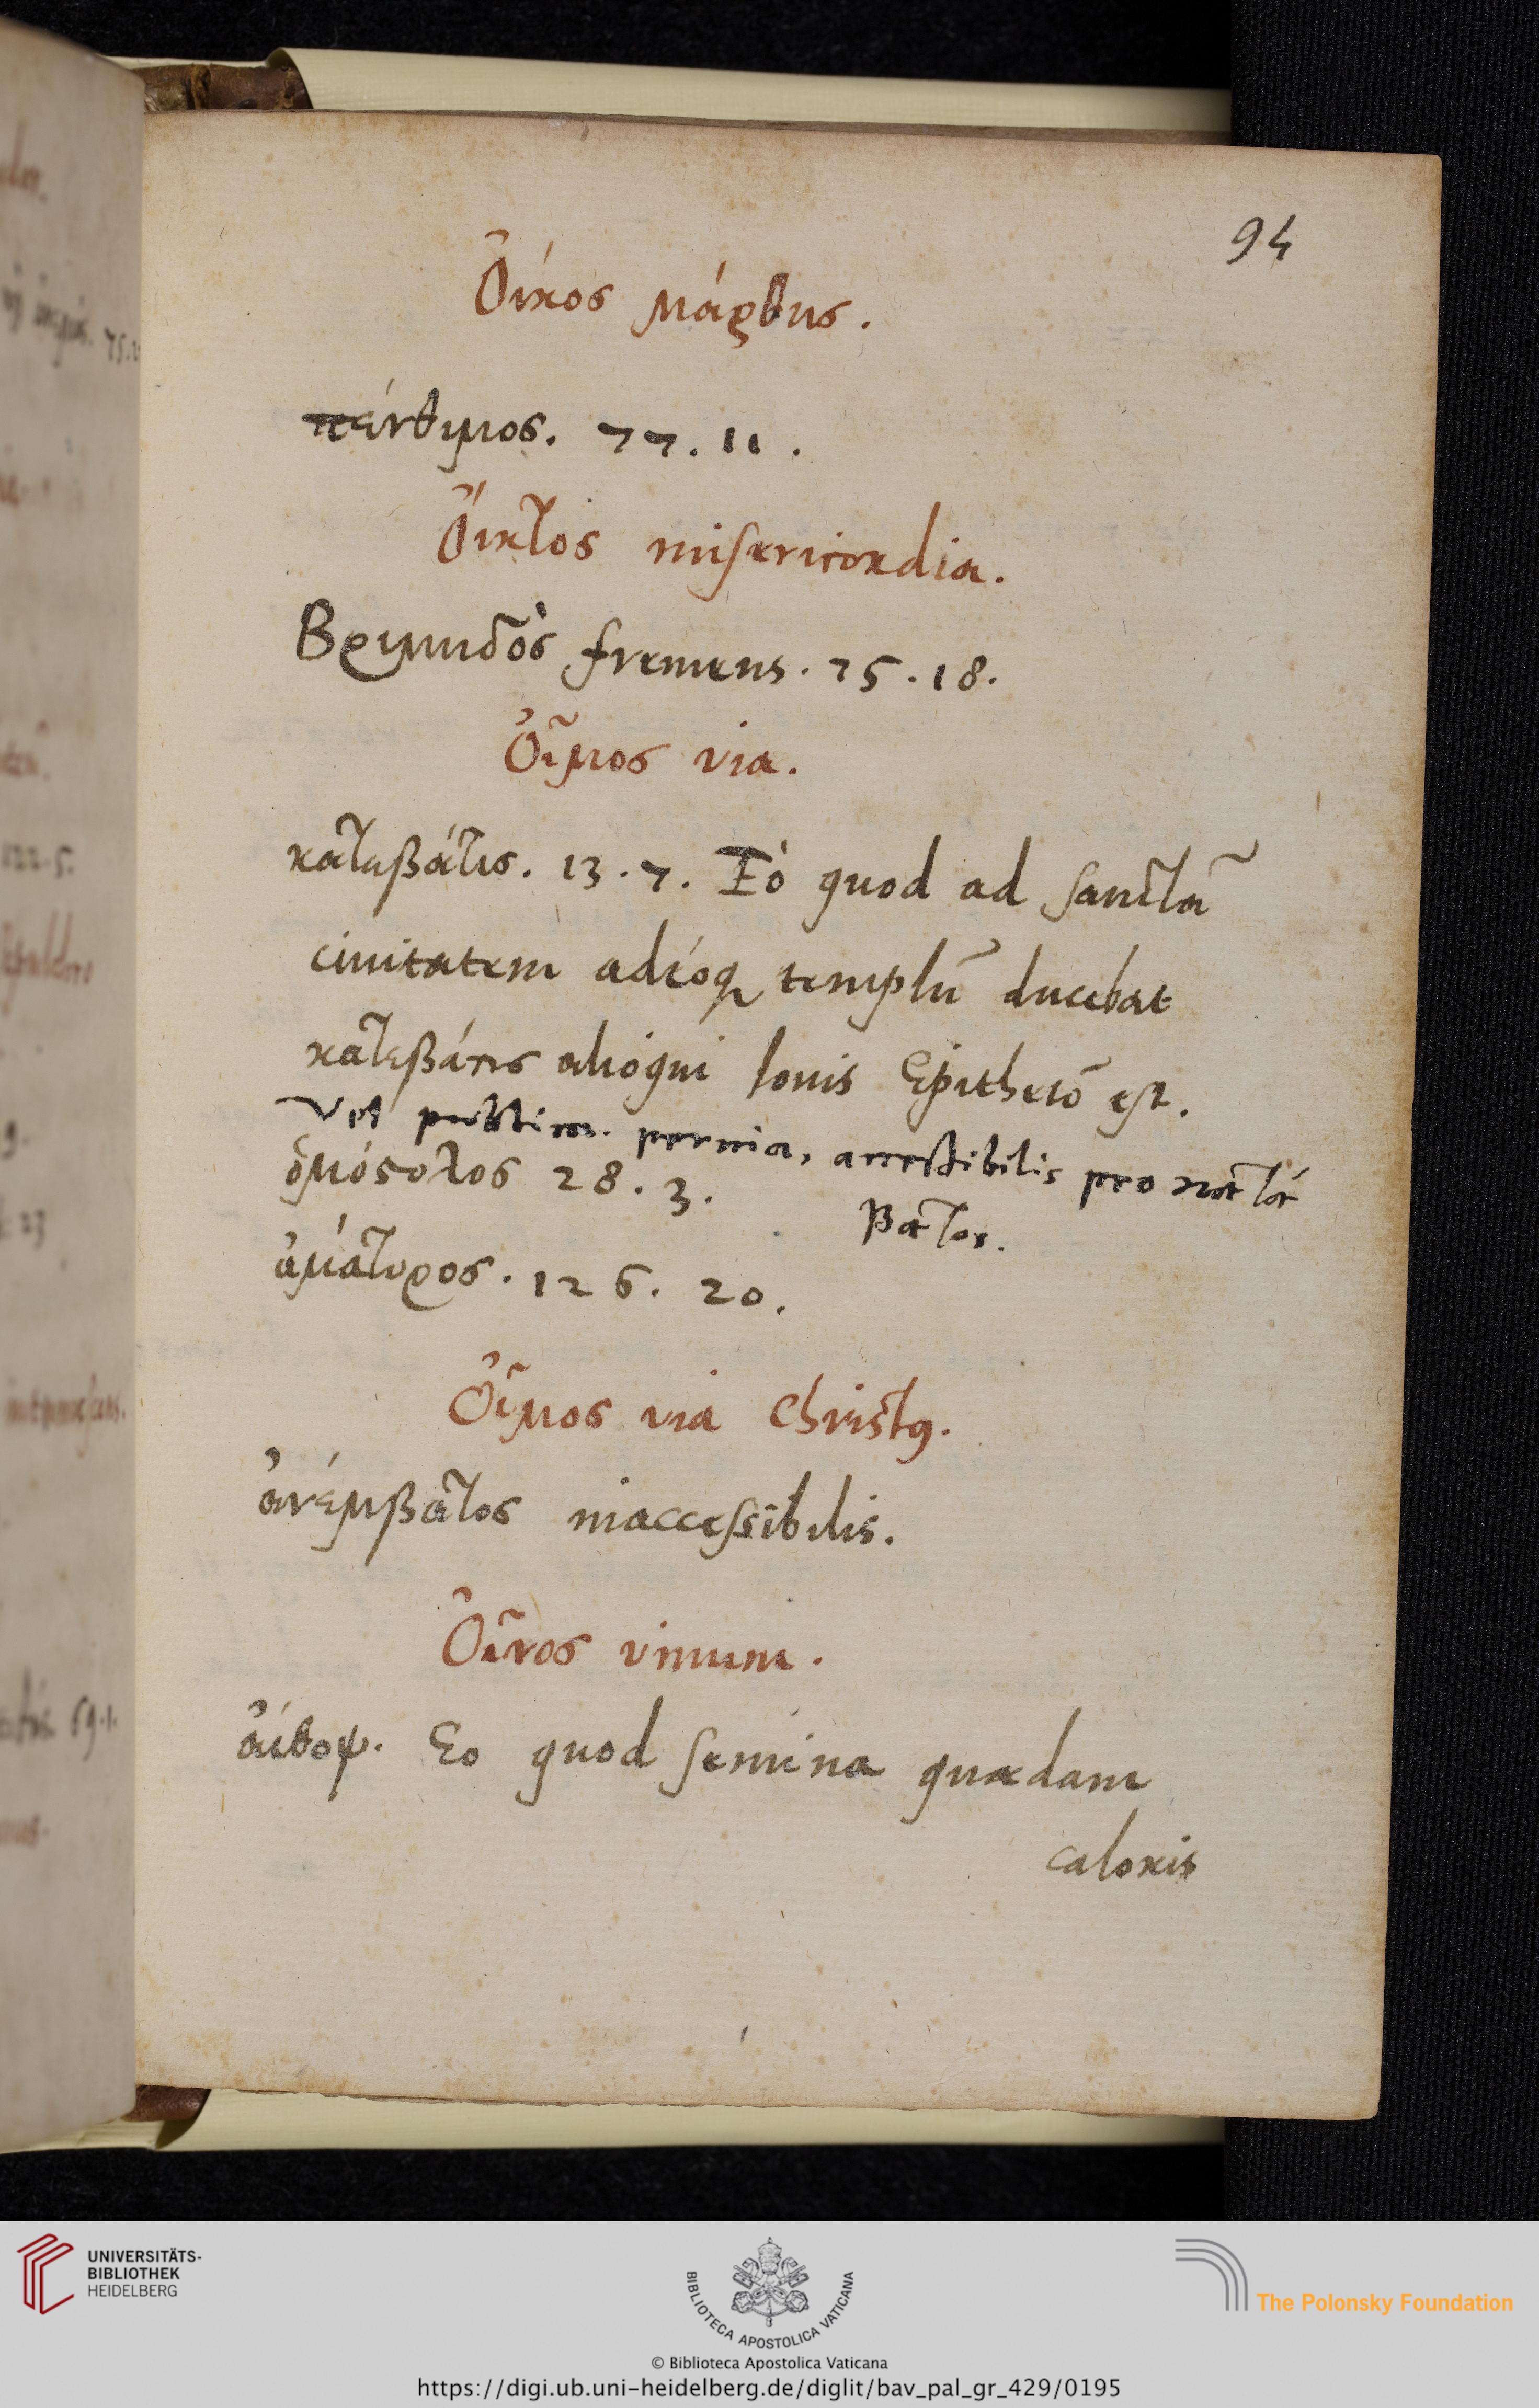 94
Ὀίκος Μάρθης.
πένθιμος. 77. 11.
Ὄικτος misericordia.
Βριμηδὸς fremens. 75. 18.
Οἶμος via.
καταιβάτις. 13. 7. Eò quod ad sanctã
ciuitatem adéoq; templũ ducebat
καταιβάτης alióqui Iouis Epithetõ est.
Vel
peruia, pro κατά
βατος.
ὁμόστολος 28. 3.
ἀμάτυρος. 126. 20.
Οἶμος via Christus.
ἀνέμβατος inaccessibilis.
Οἶνος vinum.
ἀίθοψ. Eo quod semina quædam
caloris
UNIVERSITÄTS-
BIBLIOTHEK
HEIDELBERG
BIBLIOTECA APOSTOLICA VATICANA
The Polonsky Foundation
© Biblioteca Apostolica Vaticana
https://digi.ub.uni-heidelberg.de/diglit/bav_pal_gr_429/0195